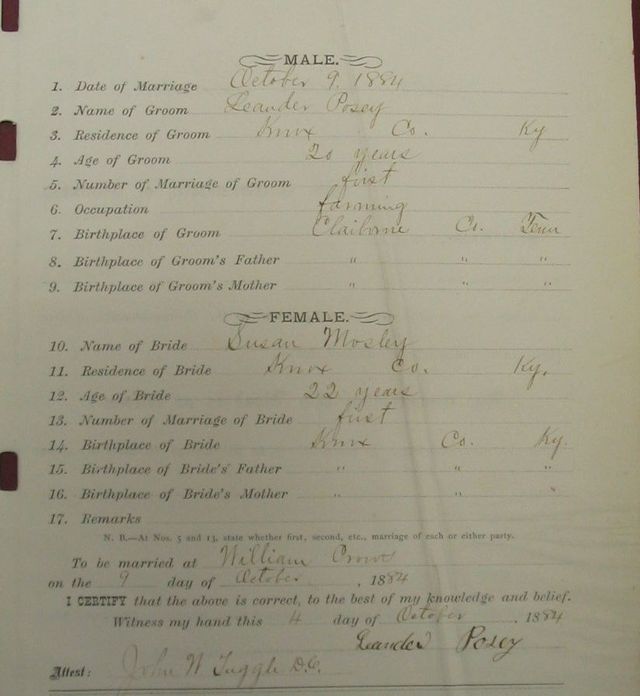 MALE.
1. Date of Marriage October 9, 1884
2. Name of Groom Leander Posey
3. Residence of Groom Knox Co. Ky
4. Age of Groom 20 years
5. Number of Marriage of Groom first
6. Occupation farming
7. Birthplace of Groom Claiborne Co. Tenn
8. Birthplace of Groom's Father " " "
9. Birthplace of Groom's Mother " " "
FEMALE.
10. Name of Bride Susan Mosley
11. Residence of Bride Knox Co. Ky.
12. Age of Bride 22 years
13. Number of Marriage of Bride first
14. Birthplace of Bride Knox Co. Ky.
15. Birthplace of Bride's Father " " "
16. Birthplace of Bride's Mother " " "
17. Remarks
N. B.—At Nos. 5 and 13, state whether first, second, etc., marriage of each or either party.
To be married at William
on the 9 day of October, 1884
I CERTIFY that the above is correct, to the best of my knowledge and belief.
Witness my hand this 4 day of October, 1884
Leander Posey
Attest: John W Tuggle D.C.